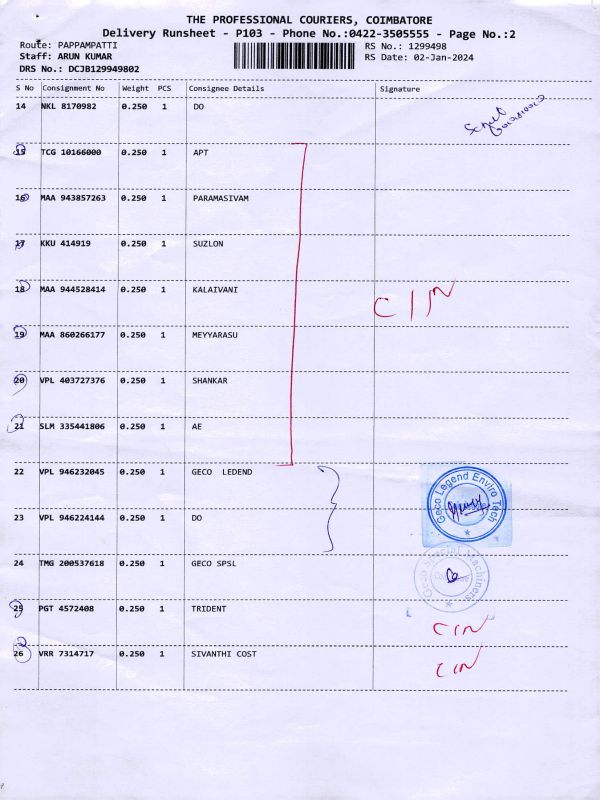 THE PROFESSIONAL COURIERS, COIMBATORE
Delivery Runsheet - P103 - Phone No.:0422-3505555 - Page No.:2
Route: PAPPAMPATTI RS No.: 1299498
Staff: ARUN KUMAR RS Date: 02-Jan-2024
DRS No.: DCJB129949802
S No Consignment No Weight PCS Consignee Details Signature
14 NKL 8170982 0.250 1 DO
15 TCG 10166000 0.250 1 APT
16 MAA 943857263 0.250 1 PARAMASIVAM
17 KKU 414919 0.250 1 SUZLON
18 MAA 944528414 0.250 1 KALAIVANI
C/N
19 MAA 860266177 0.250 1 MEYYARASU
20 VPL 403727376 0.250 1 SHANKAR
21 SLM 335441806 0.250 1 AE
22 VPL 946232045 0.250 1 GECO LEDEND
Geco Legend Enviro Tech
23 VPL 946224144 0.250 1 DO
24 TMG 200537618 0.250 1 GECO SPSL
Geco Special Machiners
25 PGT 4572408 0.250 1 TRIDENT
C/N
26 VRR 7314717 0.250 1 SIVANTHI COST
C/N